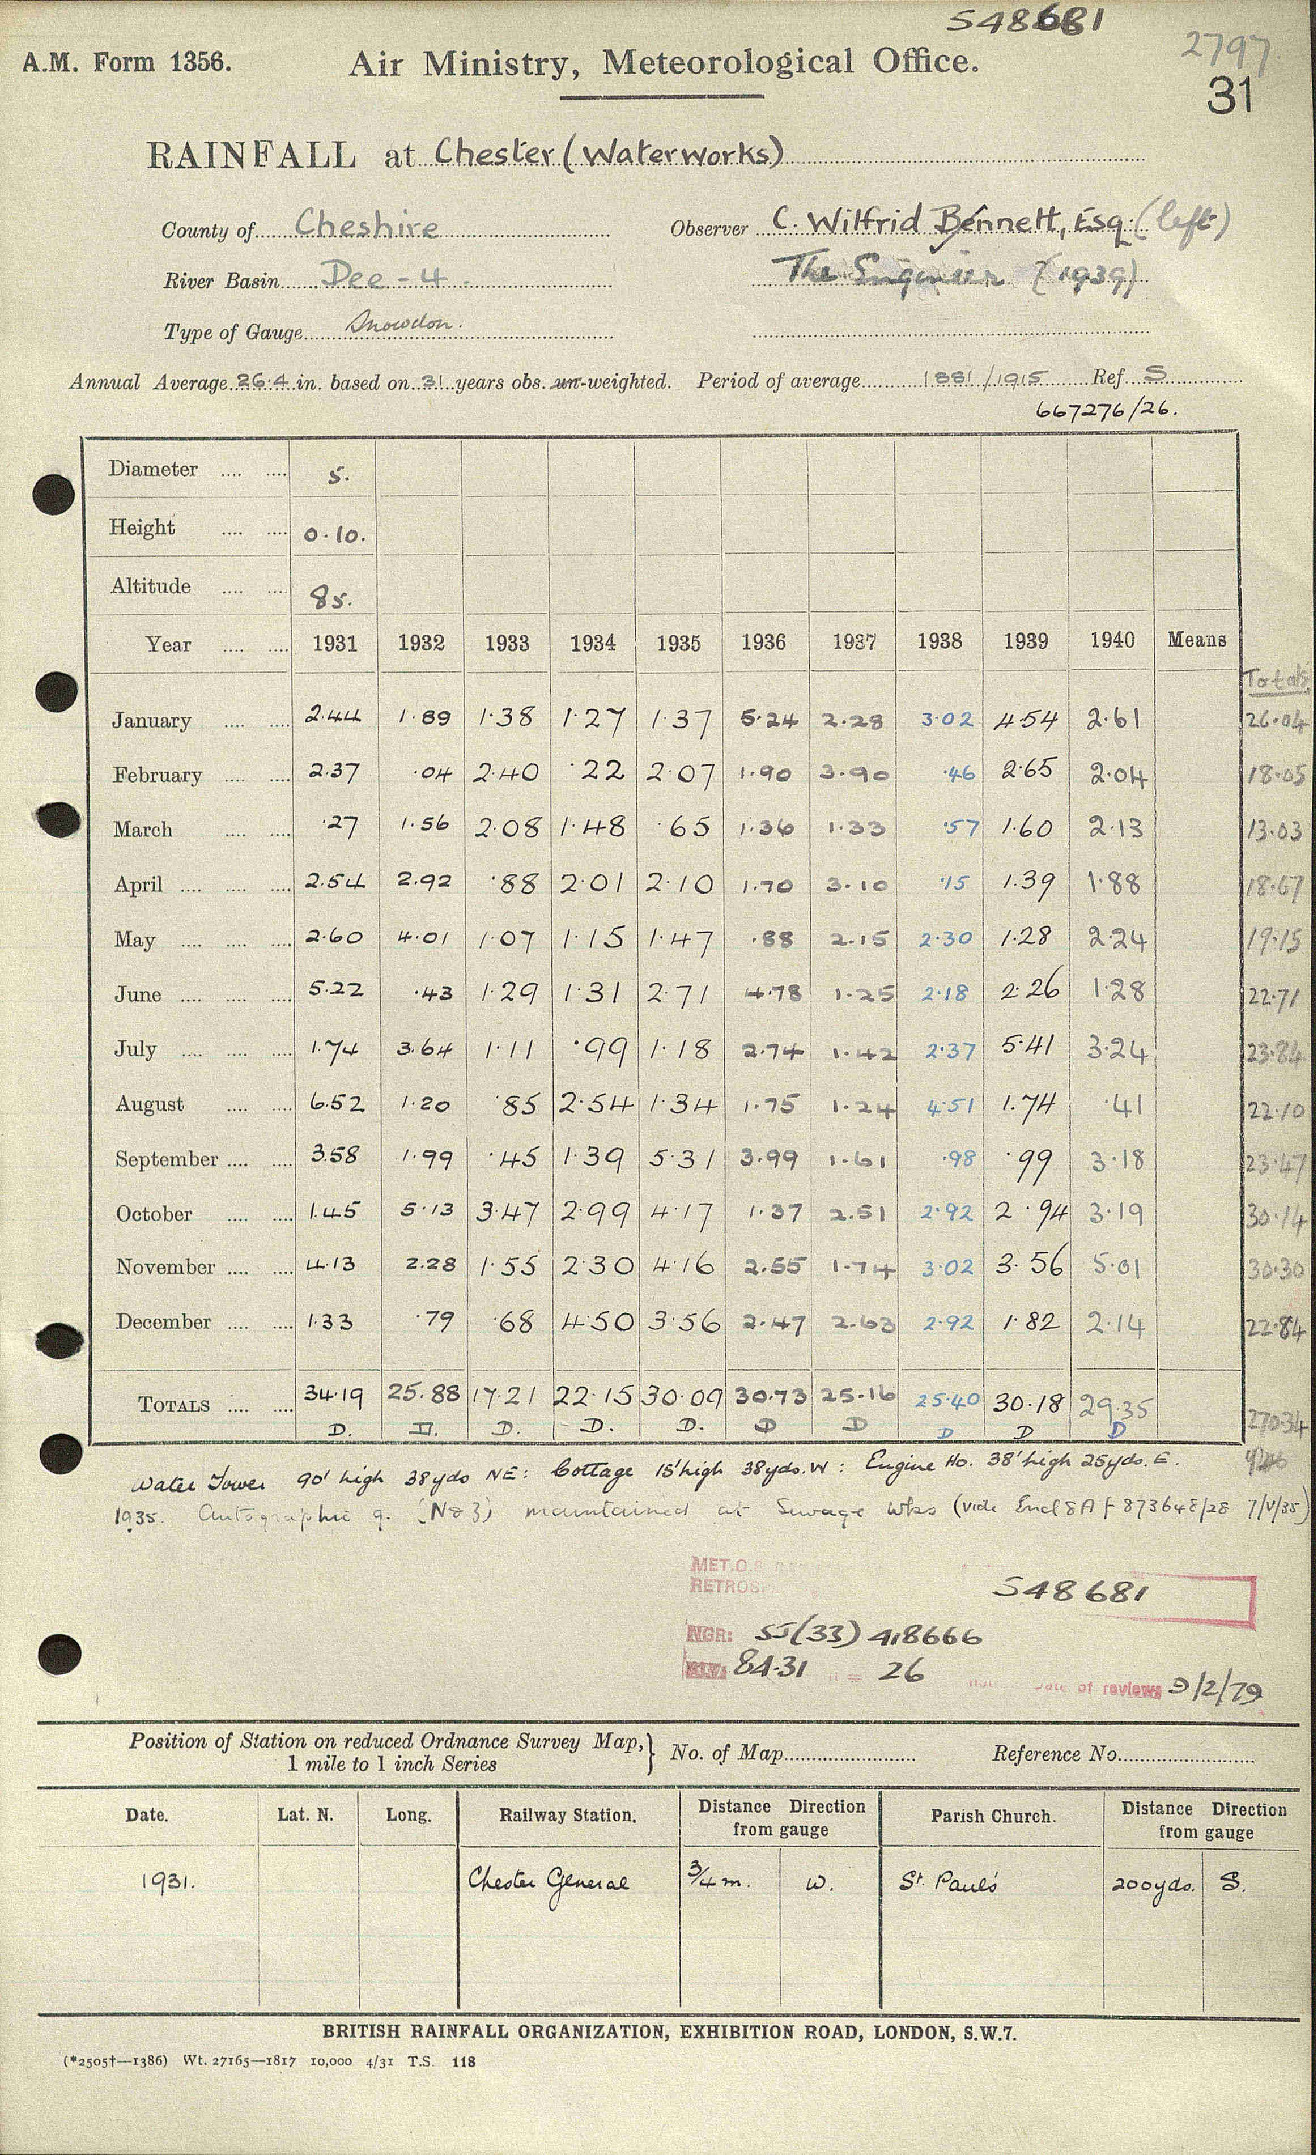 S48681
A.M. Form 1356. Air Ministry, Meteorological Office. 2797
31
RAINFALL at Chester (Waterworks)
County of Cheshire Observer C. Wilfrid Bennett, Esq. (left)
River Basin Dee - 4. The Engineer (1939)
Type of Gauge Snowdon.
Annual Average 26.4 in. based on 31 years obs. un-weighted. Period of average 1881/1915 Ref. S
667276/26.
Diameter .... .... 5.
Height .... .... 0.10.
Altitude .... .... 85.
Year .... .... 1931 1932 1933 1934 1935 1936 1937 1938 1939 1940 Means
Totals
January .... .... 2.44 1.89 1.38 1.27 1.37 5.24 2.28 3.02 4.54 2.61 26.04
February .... .... 2.37 .04 2.40 .22 2.07 1.90 3.90 .46 2.65 2.04 18.05
March .... .... .27 1.56 2.08 1.48 .65 1.36 1.33 .57 1.60 2.13 13.03
April .... .... .... 2.54 2.92 .88 2.01 2.10 1.70 3.10 .15 1.39 1.88 18.67
May .... .... .... 2.60 4.01 1.07 1.15 1.47 .88 2.15 2.30 1.28 2.24 19.15
June .... .... .... 5.22 .43 1.29 1.31 2.71 4.78 1.25 2.18 2.26 1.28 22.71
July .... .... .... 1.74 3.64 1.11 .99 1.18 2.74 1.42 2.37 5.41 3.24 23.84
August .... .... 6.52 1.20 .85 2.54 1.34 1.75 1.24 4.51 1.74 .41 22.10
September .... .... 3.58 1.99 .45 1.39 5.31 3.99 1.61 .98 .99 3.18 23.47
October .... .... 1.45 5.13 3.47 2.99 4.17 1.37 2.51 2.92 2.94 3.19 30.14
November .... .... 4.13 2.28 1.55 2.30 4.16 2.55 1.74 3.02 3.56 5.01 30.30
December .... .... 1.33 .79 .68 4.50 3.56 2.47 2.63 2.92 1.82 2.14 22.84
TOTALS .... .... 34.19 25.88 17.21 22.15 30.09 30.73 25.16 25.40 30.18 29.35 270.34
D. D. D. D. D. D D D D D
Water Tower 90' high 38yds NE: Cottage 15' high 38yds. W: Engine Ho. 38' high 25yds. E.
1935. Autographic g. (No 3) maintained at Sewage Wks (vide Encl 8A f 873648/28 7/V/35)
MET.O.
RETROS
S48681
NGR: SJ(33) 418666
84.31 = 26 Date of reviews 9/2/79
Position of Station on reduced Ordnance Survey Map, 1 mile to 1 inch Series } No. of Map Reference No.
Date. Lat. N. Long. Railway Station. Distance Direction from gauge Parish Church. Distance Direction from gauge
1931. Chester General 3/4 m. W. St. Paul's 200yds. S.
BRITISH RAINFALL ORGANIZATION, EXHIBITION ROAD, LONDON, S.W.7.
(*2505†—1386) Wt. 27165—1817 10,000 4/31 T.S. 118